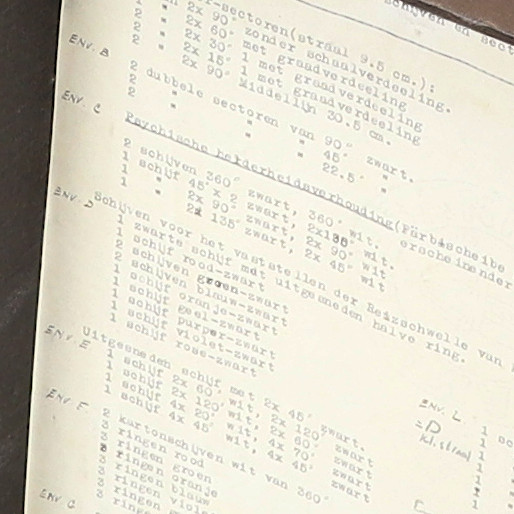 schijven en sect
-sectoren(straal 9.5 cm.):
2 " 2x 90° zonder schaalverdeeling.
2 " 2x 60° met graadverdeeling
2 " 2x 30° 1 met graadverdeeling
2 " 2x 15° 1 met graadverdeeling
2x 90° Middellijn 30.5 cm.
ENV. B
2 dubbele sectoren van 90° zwart.
2 " " " 45° "
2 " " " 22.5° "
ENV. C
Psychische helderheidsverhouding(Farbscheibe
erscheinender
2 schijven 360° zwart, 360° wit.
1 schijf 45° x 2 zwart, 2x135° wit.
1 " 2x 90° zwart, 2x 90° wit
1 " 2x 135° zwart, 2x 45° wit
ENV. D
Schijven voor het vaststellen der Reizschwelle van
1 zwarte schijf met uitgesneden halve ring.
2 schijf rood-zwart
2 schijven groen-zwart
1 schijven blauw-zwart
1 schijf oranje-zwart
1 schijf geel-zwart
1 schijf purper-zwart
1 schijf violet-zwart
1 schijf rose-zwart
ENV. E
Uitgesneden schijf met 2x 45° zwart.
1 schijf 2x 60° wit, 2x 120° zwart
1 schijf 2x 120° wit, 2x 60° zwart
1 schijf 4x 20° wit, 4x 70° zwart
1 schijf 4x 45° wit, 4x 45° zwart
ENV. F
2 kartonschijven wit van 360°
3 ringen rood
3 ringen groen
3 ringen oranje
3 ringen blauw
3 ringen violet
ENV. G
ENV. L
= D
kl. straal